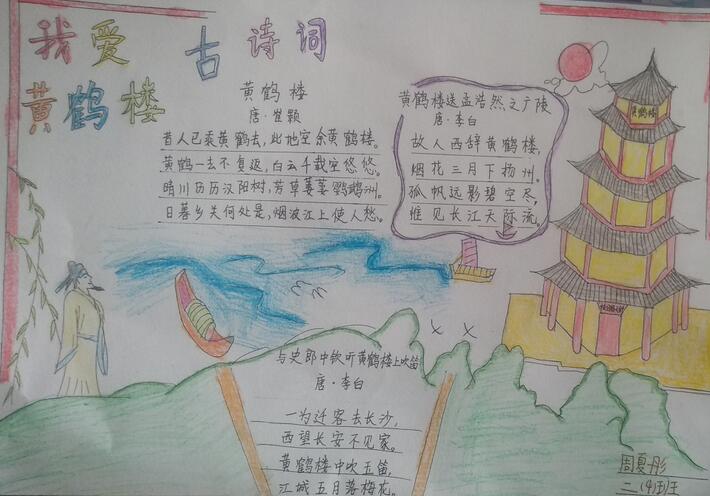 我爱古诗词
黄鹤楼
黄鹤楼
唐·崔颢
昔人已乘黄鹤去，此地空余黄鹤楼。
黄鹤一去不复返，白云千载空悠悠。
晴川历历汉阳树，芳草萋萋鹦鹉洲。
日暮乡关何处是，烟波江上使人愁。
黄鹤楼送孟浩然之广陵
唐·李白
故人西辞黄鹤楼，
烟花三月下扬州。
孤帆远影碧空尽，
惟见长江天际流
黄鹤楼
与史郎中钦听黄鹤楼上吹笛
唐·李白
一为迁客去长沙，
西望长安不见家。
黄鹤楼中吹玉笛，
江城五月落梅花。
周夏彤
二(4)班